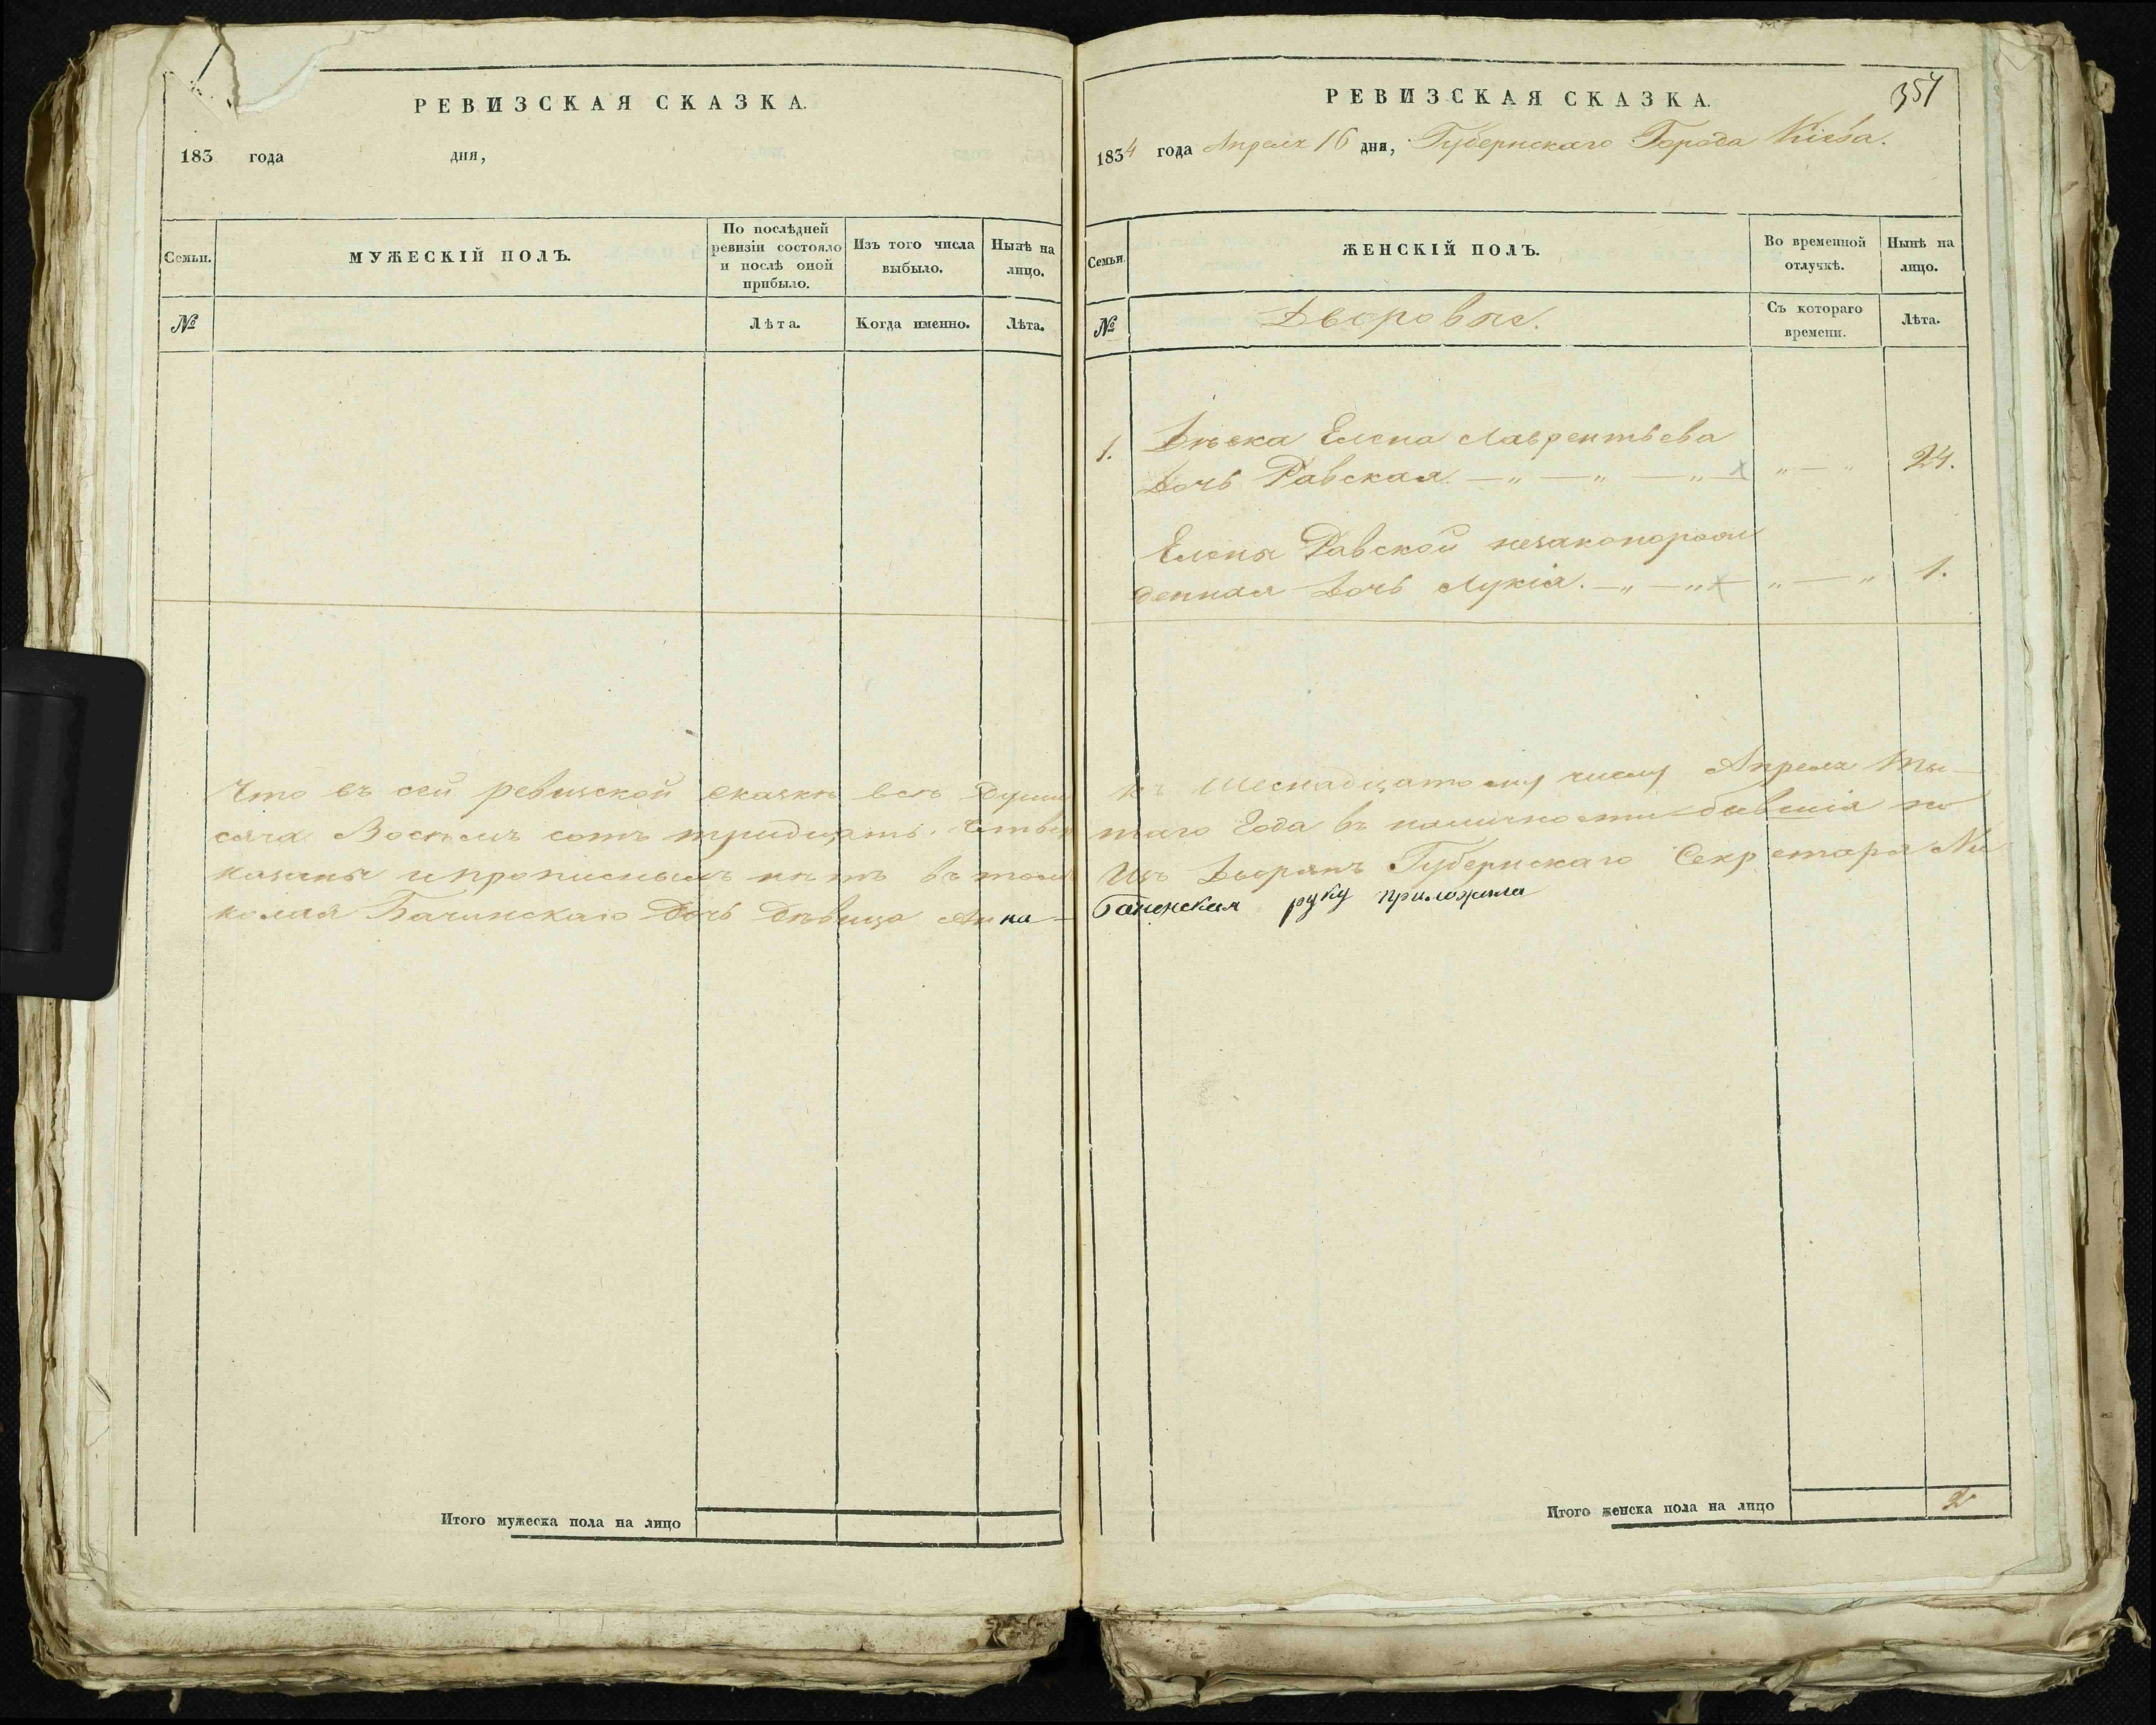 РЕВИЗСКАЯ СКАЗКА.
183 года дня,
Семьи.
МУЖЕСКІЙ ПОЛЪ.
По послѣдней ревизіи состояло и послѣ оной прибыло.
Изъ того числа выбыло.
Нынѣ на лицо.
№
Лѣта.
Когда именно.
Лѣта.
Что въ сей ревизской сказкѣ всѣ души
сяча Восемь сотъ тридцать. Четвер
казаны и прописныхъ нѣтъ въ томъ
колая Бачинскаго дочь дѣвица Анна
Итого мужеска пола на лицо
РЕВИЗСКАЯ СКАЗКА.
357
1834 года Апреля 16 дня, Губернскаго Города Кіева.
Семьи.
ЖЕНСКІЙ ПОЛЪ.
Во временной отлучкѣ.
Нынѣ на лицо.
№
Дворовые.
Съ котораго времени.
Лѣта.
1. Дѣвка Елена Лаврентьева
Дочь Равская. — „ — „ — „ — „ — „ 24.
Елены Равской незаконорож
денная Дочь Лукія. — „ — „ — „ — „ 1.
къ Шеснадцатому числу Апреля Ты-
таго Года въ наличности бывшія по
Изъ Дворянъ Губернскаго Секретаря Ни
Бачинская руку приложила
Итого женска пола на лицо
2